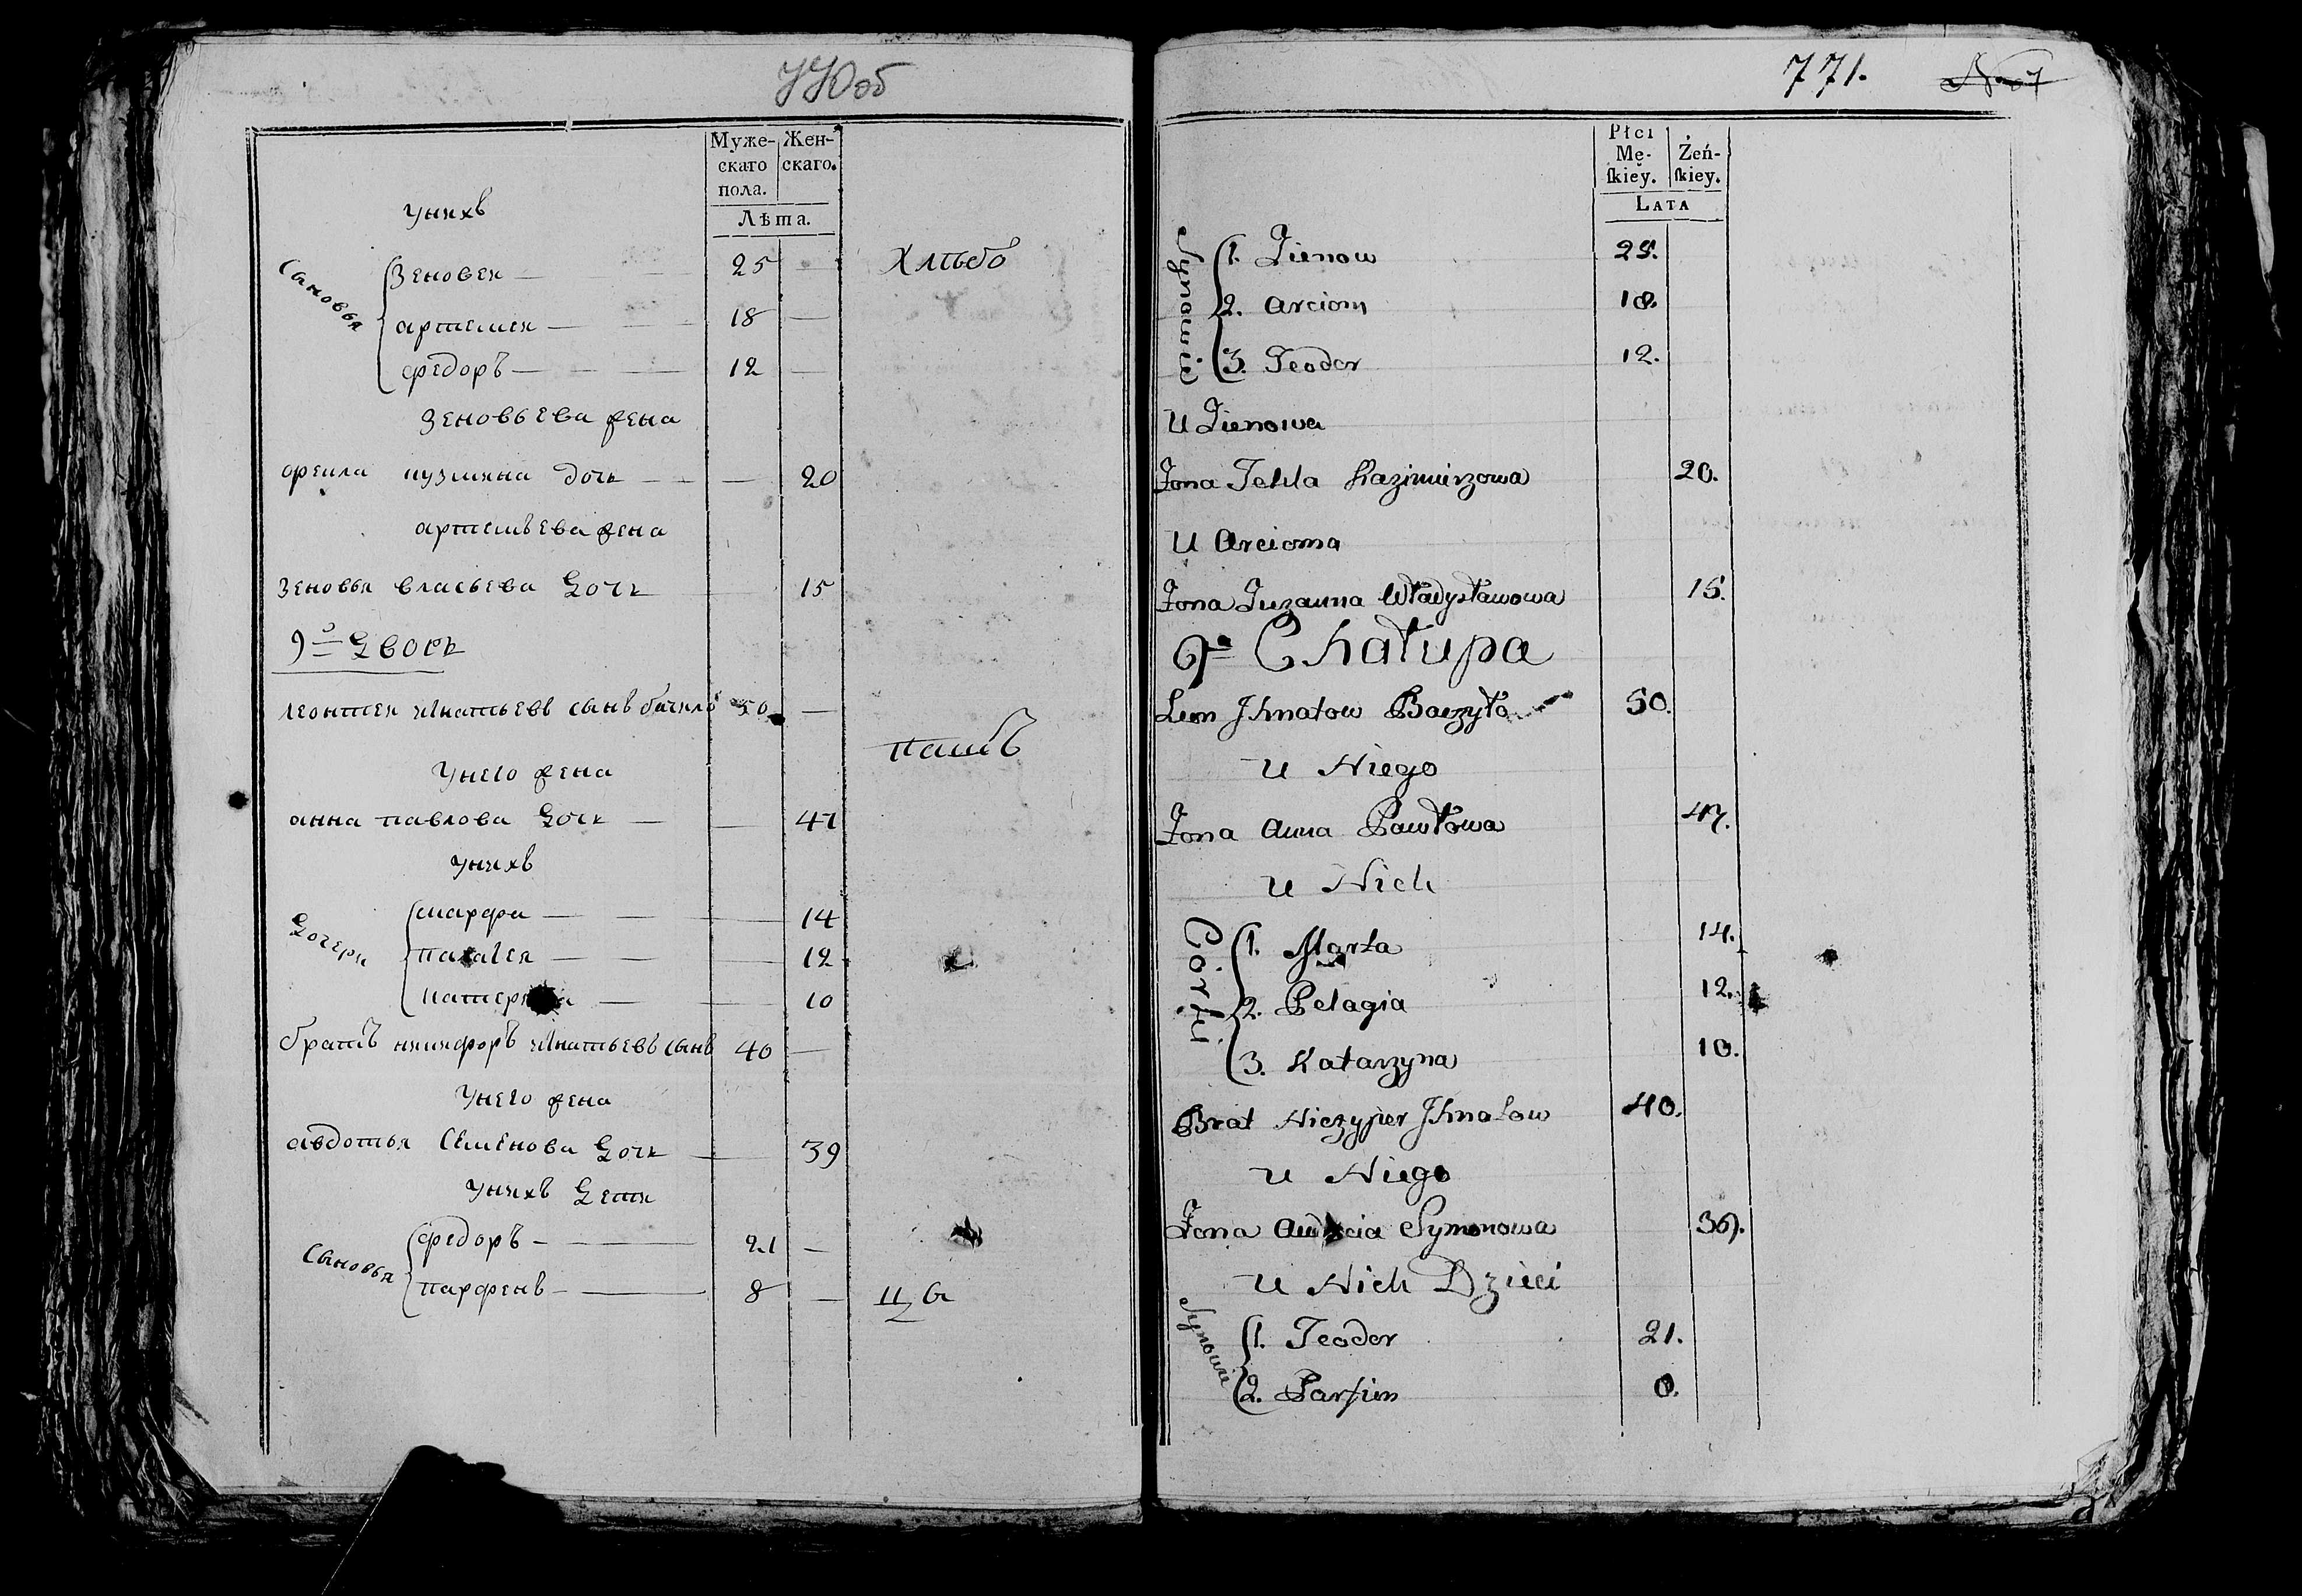 770об
Муже-
скаго
пола.
Жен-
скаго.
Лѣта.
У нихъ
Сыновья
Зеновеи — 25 —
артемеи — 18 —
федоръ — 12 —
Хлебо
Зеновьева жена
фекла кузмина дочь — 20
артемьева жена
зеновья власьева дочь 15
9й дворъ
леонтеи игнатьевъ сынъ бачило 50 —
У него жена
пашъ
анна павлова дочь — 47
У нихъ
Дочери
марфа — 14
палагея — 12
катерина — 10
братъ никифоръ игнатьевъ сынъ 40 —
У него жена
авдотья семенова дочь — 39
У нихъ дети
Сыновья
федоръ — 21 —
парфенъ — 8 —
771.
Płci
Mę-
skiey.
Żeń-
skiey.
LATA
Synowie
1. Zienow 25.
2. Arciom 18.
3. Teodor 12.
U Zienowa
Żona Tekla Kazimierzowa 20.
U Arcioma
Żona Zuzanna Władysławowa 15.
9a Chałupa
Leon Ihnatow Baczyło 50.
U Niego
Żona Anna Pawłowa 47.
U Nich
Córki
1. Marta 14.
2. Pelagia 12.
3. Katarzyna 10.
Brat Niczyper Ihnatow 40.
U Niego
Żona Symonowa 39.
U Nich Dzieci
Synowie
1. Teodor 21.
2. Parfien 8.